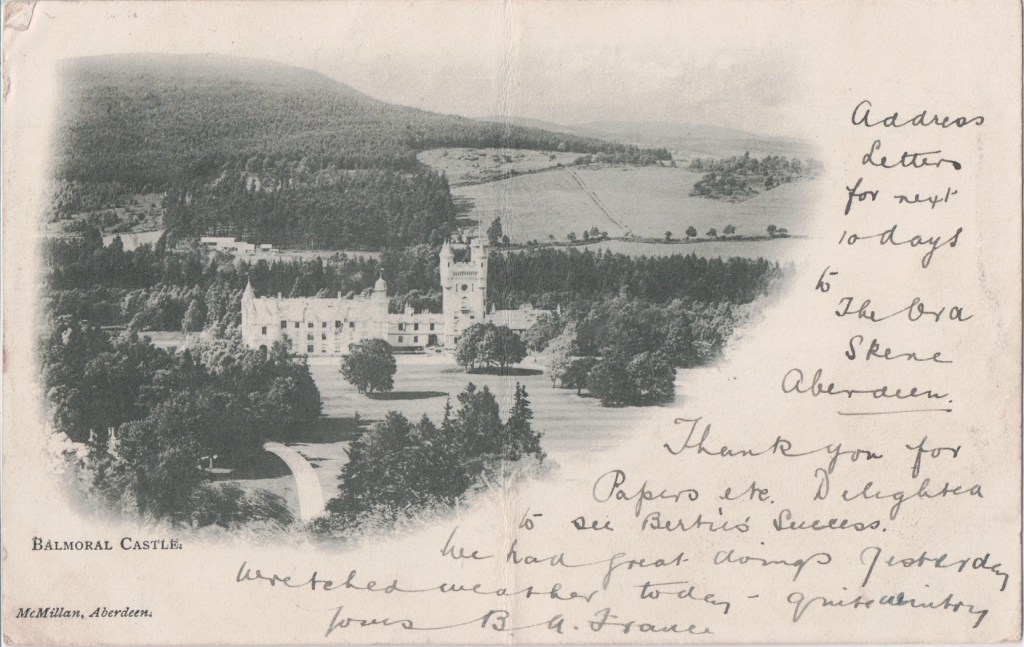 Address
Letters
for next
10 days
to
The
Skene
Aberdeen.
Thank you for
Papers etc. Delighted
to see Bertie's Success.
We had great doings Yesterday
wretched weather today - quite wintry
yours B A. France
BALMORAL CASTLE.
McMillan, Aberdeen.